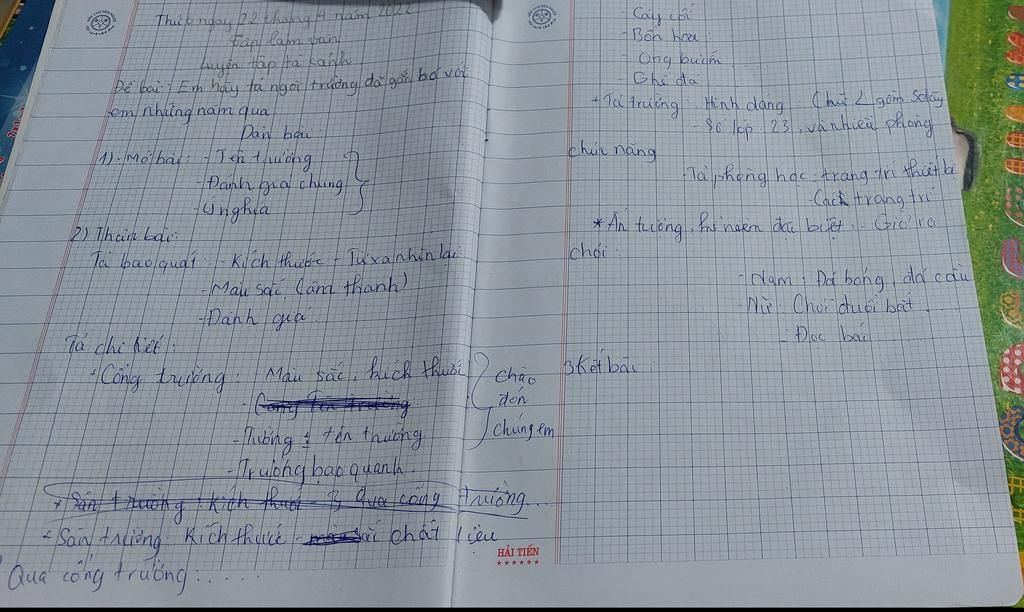 Thứ 6 ngày 22 tháng 4 năm 2022
Tập làm văn
Luyện tập tả cảnh
Đề bài: Em hãy tả ngôi trường đã gắn bó với
em những năm qua
Dàn bài
1) Mở bài: - Tên trường
- Đánh giá chung
- Ý nghĩa
2) Thân bài:
Tả bao quát: - Kích thước - Từ xa nhìn lại
- Màu sắc, (âm thanh)
- Đánh giá
Tả chi tiết:
+ Cổng trường: Màu sắc, kích thước
- Cổng Tên trường
- Tường tên trường
- Trường bao quanh.
chào
đón
chúng em
+ Sân trường: kích thước Qua cổng trường...
- Sân trường: Kích thước - màu sắc chất liệu
HẢI TIẾN
Qua cổng trường:.....
- Cây cối
- Bồn hoa
- Ong bướm
- Ghế đá
+ Tả trường: Hình dáng: Chữ L gồm 5 dãy
- Số lớp: 23, và nhiều phòng
chức năng
- Tả phòng học: trang trí thiết bị
- Cách trang trí
* Ấn tượng, kỉ niệm đặc biệt: - Giờ ra
chơi:
- Nam: Đá bóng, đá cầu
- Nữ: Chơi đuổi bắt
- Đọc báo
3 Kết bài: